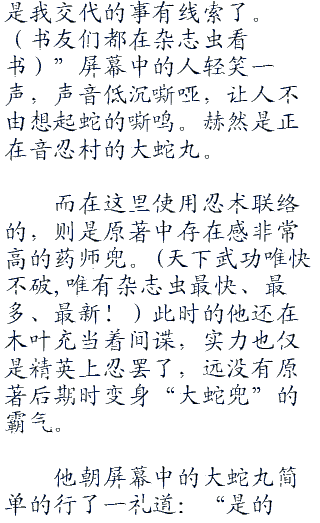 是我交代的事有线索了。
（书友们都在杂志虫看
书）”屏幕中的人轻笑一
声，声音低沉嘶哑，让人不
由想起蛇的嘶鸣。赫然是正
在音忍村的大蛇丸。
而在这里使用忍术联络
的，则是原著中存在感非常
高的药师兜。(天下武功唯快
不破,唯有杂志虫最快、最
多、最新！）此时的他还在
木叶充当着间谍，实力也仅
是精英上忍罢了，远没有原
著后期时变身“大蛇兜”的
霸气。
他朝屏幕中的大蛇丸简
单的行了一礼道：“是的